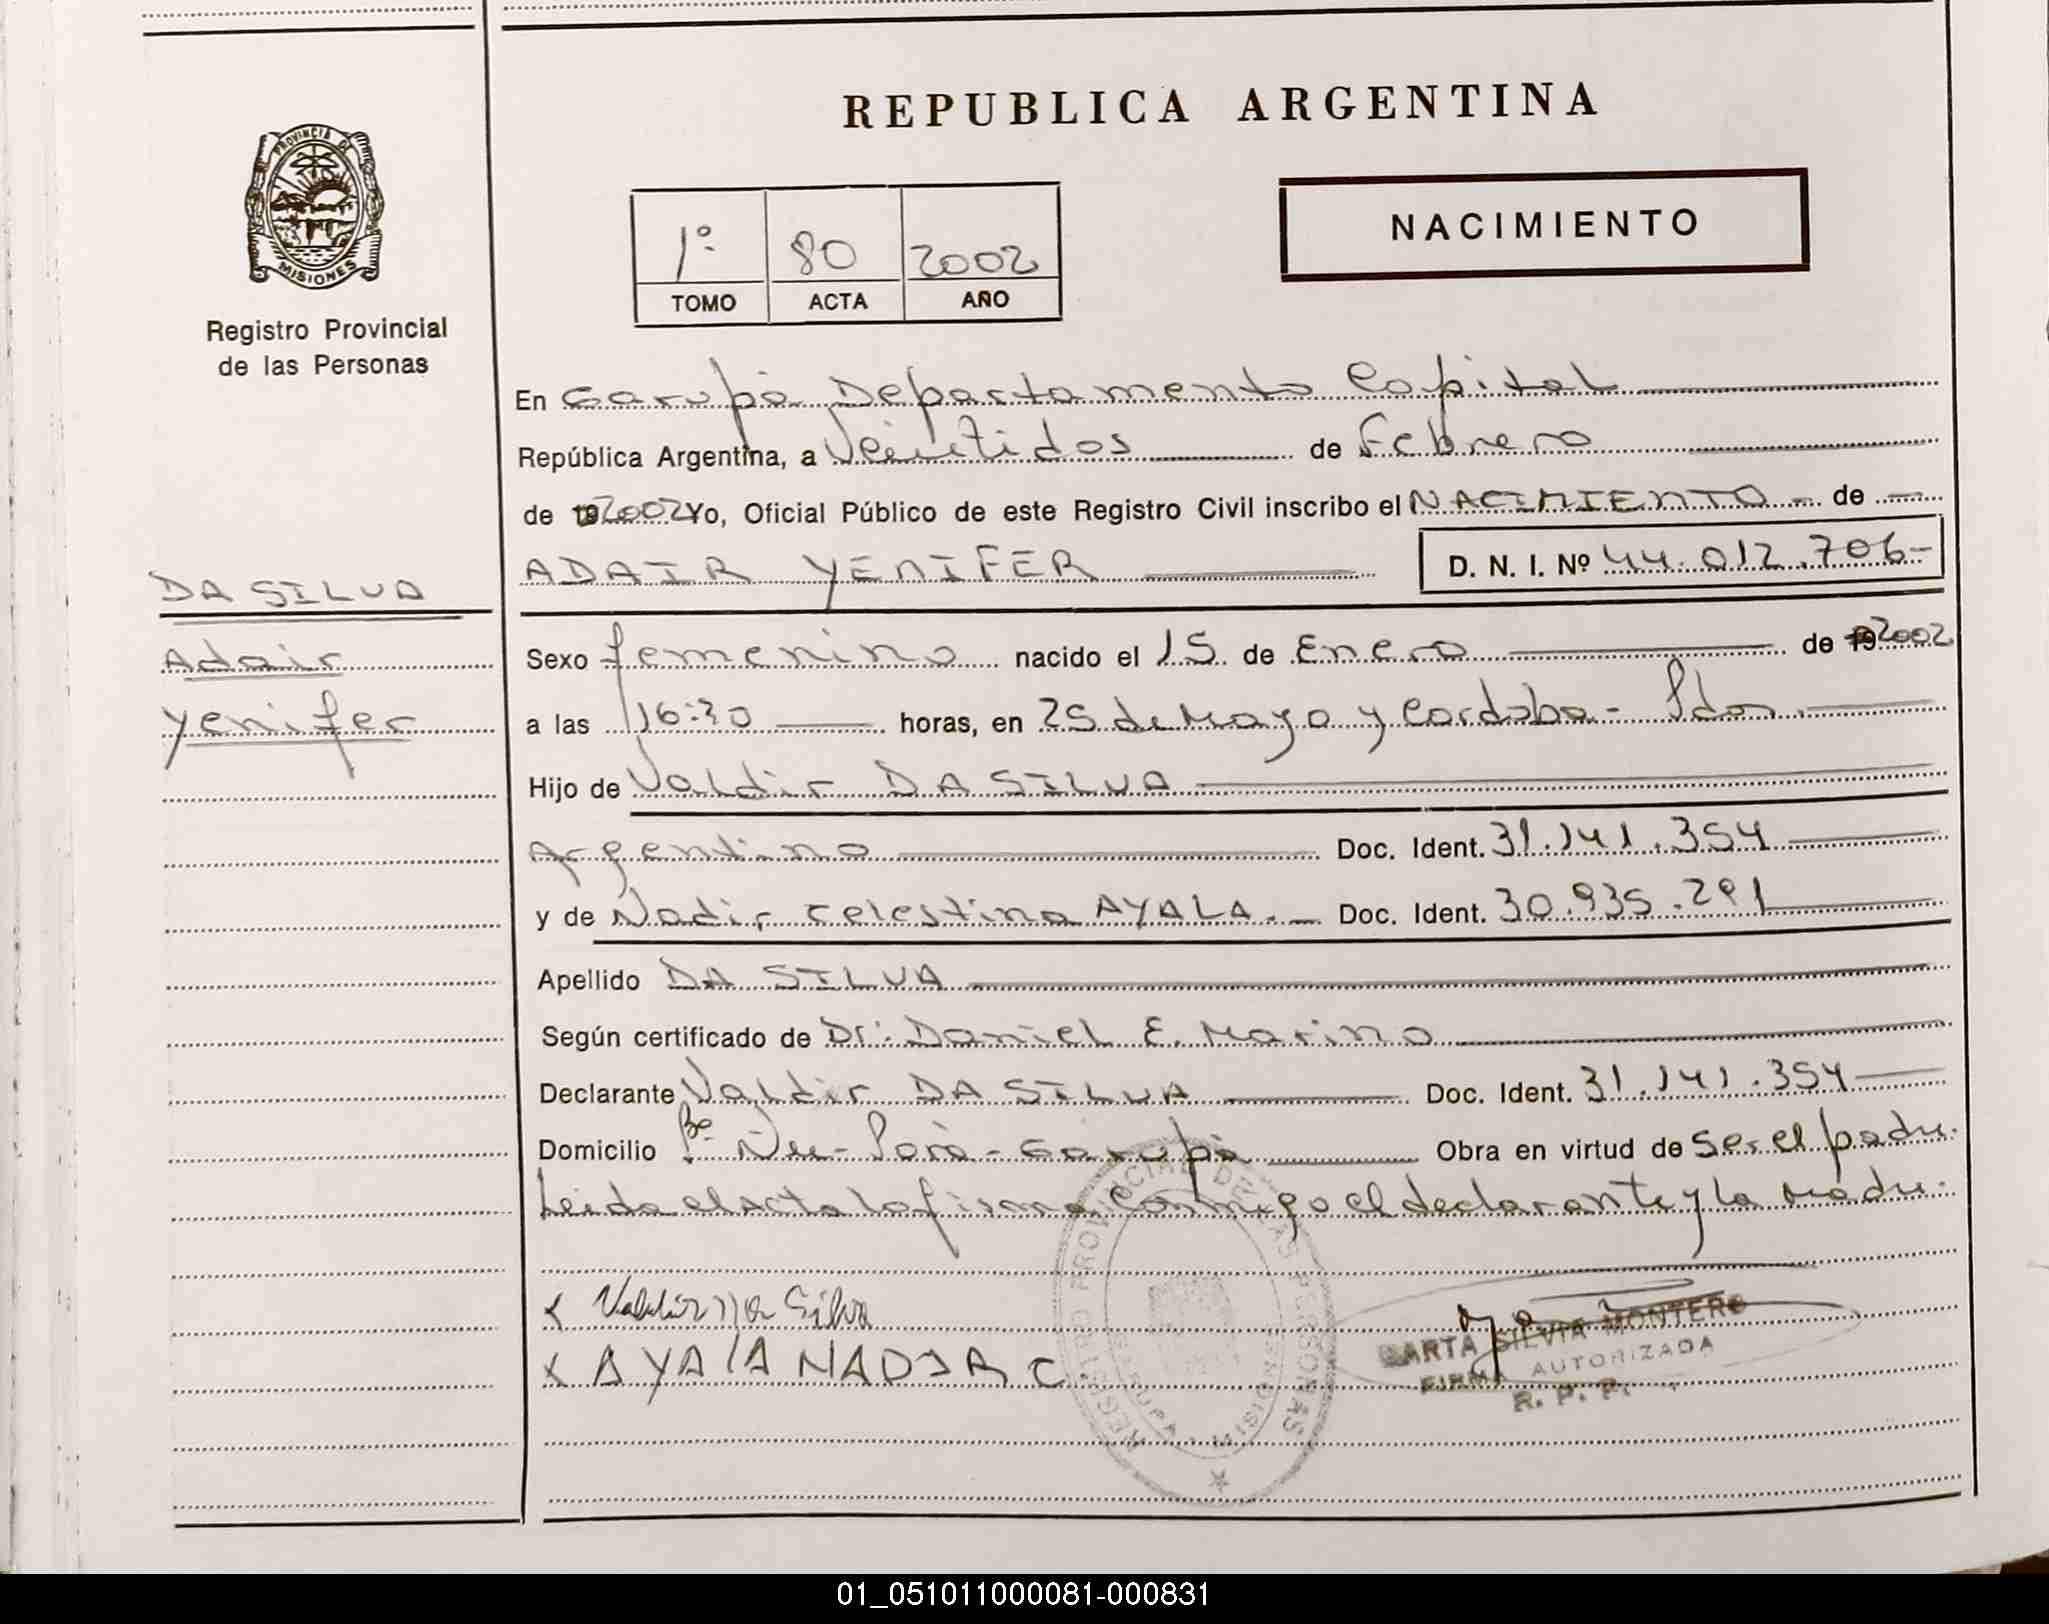 REPUBLICA ARGENTINA
PROVINCIA DE
MISIONES
Registro Provincial
de las Personas
1º 80 2002
TOMO ACTA AÑO
NACIMIENTO
En Garupá Departamento Capital
República Argentina, a Veintidos de Febrero
de 2002 Yo, Oficial Público de este Registro Civil inscribo el NACIMIENTO - de
ADAIR YENIFER D. N. I. Nº 44.012.706-
DA SILVA
Adair
Yenifer
Sexo femenino nacido el 15 de Enero de 19 2002
a las 16:30 horas, en 25 de Mayo y Cordoba - Pdas.
Hijo de Valdir DA SILVA
Argentino Doc. Ident. 31.141.354
y de Nadir Celestina AYALA.- Doc. Ident. 30.935.291
Apellido DA SILVA
Según certificado de Dr. Daniel E. Marino
Declarante Valdir DA SILVA Doc. Ident. 31.141.354
Domicilio Bº Ñu-Porá-Garupá Obra en virtud de Ser el padre.
Leida el acta la firma conmigo el declarante y la madre.
x Valdir Da Silva
x AYALA NADIR C.
REGISTRO PROVINCIAL DE LAS PERSONAS
GARUPA MISIONES
MARTA SILVIA MONTERO
FIRMA AUTORIZADA
R. P. P.
01_051011000081-000831